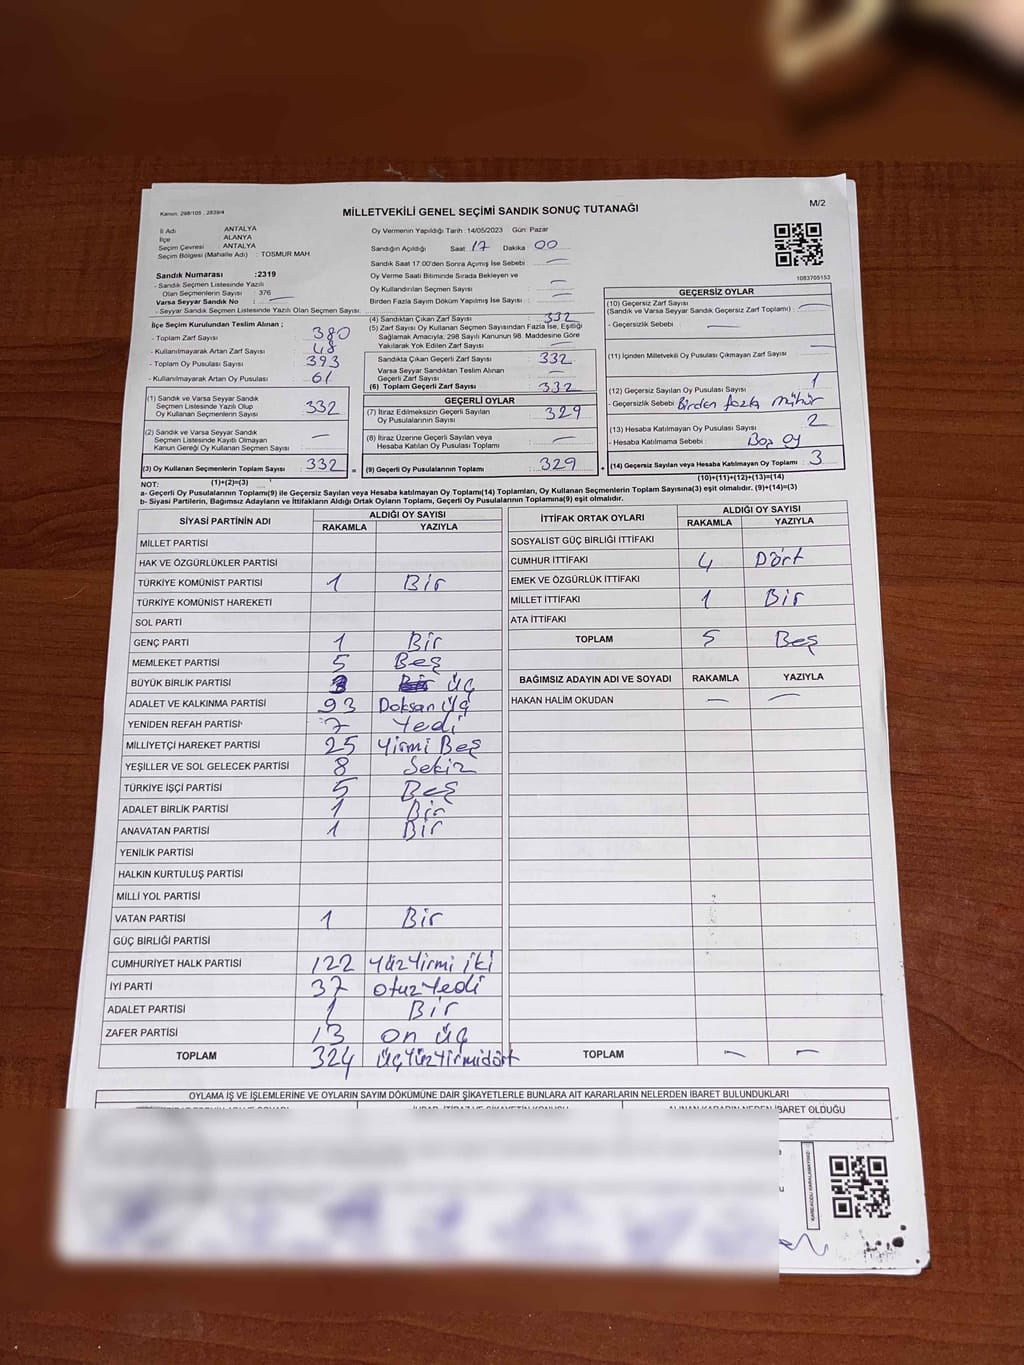 Kanun. 298/105 , 2839/4
MİLLETVEKİLİ GENEL SEÇİMİ SANDIK SONUÇ TUTANAĞI
M/2
İl Adı ANTALYA
İlçe ALANYA
Seçim Çevresi ANTALYA
Seçim Bölgesi (Mahalle Adı) : TOSMUR MAH
Sandık Numarası :2319
- Sandık Seçmen Listesinde Yazılı
Olan Seçmenlerin Sayısı : 376
Varsa Seyyar Sandık No : —
- Seyyar Sandık Seçmen Listesinde Yazılı Olan Seçmen Sayısı
Oy Vermenin Yapıldığı Tarih : 14/05/2023 Gün: Pazar
Sandığın Açıldığı Saat: 17 Dakika : 00
Sandık Saat 17.00'den Sonra Açılmış İse Sebebi : —
Oy Verme Saati Bitiminde Sırada Bekleyen ve
Oy Kullandırılan Seçmen Sayısı : —
Birden Fazla Sayım Döküm Yapılmış İse Sayısı : —
1083705153
İlçe Seçim Kurulundan Teslim Alınan ;
- Toplam Zarf Sayısı : 380
- Kullanılmayarak Artan Zarf Sayısı : 48
- Toplam Oy Pusulası Sayısı : 393
- Kullanılmayarak Artan Oy Pusulası : 61
(1) Sandık ve Varsa Seyyar Sandık
Seçmen Listesinde Yazılı Olup
Oy Kullanan Seçmenlerin Sayısı : 332
(2) Varsa Sandık ve Varsa Seyyar Sandık
Seçmen Listesinde Kayıtlı Olmayan
Kanun Gereği Oy Kullanan Seçmen Sayısı : —
(3) Oy Kullanan Seçmenlerin Toplam Sayısı : 332 =
(4) Sandıktan Çıkan Zarf Sayısı : 332
(5) Zarf Sayısı Oy Kullanan Seçmen Sayısından Fazla İse, Eşitliği
Sağlamak Amacıyla, 298 Sayılı Kanunun 98. Maddesine Göre
Yakılarak Yok Edilen Zarf Sayısı : —
Sandıkta Çıkan Geçerli Zarf Sayısı : 332
Varsa Seyyar Sandıktan Teslim Alınan
Geçerli Zarf Sayısı : —
(6) Toplam Geçerli Zarf Sayısı : 332
GEÇERLİ OYLAR
(7) İtiraz Edilmeksizin Geçerli Sayılan
Oy Pusulalarının Sayısı : 329
(8) İtiraz Üzerine Geçerli Sayılan veya
Hesaba Katılan Oy Pusulası Toplamı : —
(9) Geçerli Oy Pusulalarının Toplamı : 329 +
GEÇERSİZ OYLAR
(10) Geçersiz Zarf Sayısı
(Sandık ve Varsa Seyyar Sandık Geçersiz Zarf Toplamı) : —
- Geçersizlik Sebebi : —
(11) İçinden Milletvekili Oy Pusulası Çıkmayan Zarf Sayısı : —
(12) Geçersiz Sayılan Oy Pusulası Sayısı : 1
- Geçersizlik Sebebi : Birden fazla mühür
(13) Hesaba Katılmayan Oy Pusulası Sayısı : 2
- Hesaba Katılmama Sebebi : Boş oy
(14) Geçersiz Sayılan veya Hesaba Katılmayan Oy Toplamı : 3
NOT: (1)+(2)=(3) (10)+(11)+(12)+(13)=(14)
a- Geçerli Oy Pusulalarının Toplamı(9) ile Geçersiz Sayılan veya Hesaba katılmayan Oy Toplamı(14) Toplamları, Oy Kullanan Seçmenlerin Toplam Sayısına(3) eşit olmalıdır. (9)+(14)=(3)
b- Siyasi Partilerin, Bağımsız Adayların ve İttifakların Aldığı Ortak Oyların Toplamı, Geçerli Oy Pusulalarının Toplamına(9) eşit olmalıdır.
SİYASİ PARTİNİN ADI ALDIĞI OY SAYISI
RAKAMLA YAZIYLA
MİLLET PARTİSİ
HAK VE ÖZGÜRLÜKLER PARTİSİ
TÜRKİYE KOMÜNİST PARTİSİ 1 Bir
TÜRKİYE KOMÜNİST HAREKETİ
SOL PARTİ
GENÇ PARTİ 1 Bir
MEMLEKET PARTİSİ 5 Beş
BÜYÜK BİRLİK PARTİSİ 3 üç
ADALET VE KALKINMA PARTİSİ 93 Doksan üç
YENİDEN REFAH PARTİSİ 7 Yedi
MİLLİYETÇİ HAREKET PARTİSİ 25 Yirmi Beş
YEŞİLLER VE SOL GELECEK PARTİSİ 8 Sekiz
TÜRKİYE İŞÇİ PARTİSİ 5 Beş
ADALET BİRLİK PARTİSİ 1 Bir
ANAVATAN PARTİSİ 1 Bir
YENİLİK PARTİSİ
HALKIN KURTULUŞ PARTİSİ
MİLLİ YOL PARTİSİ
VATAN PARTİSİ 1 Bir
GÜÇ BİRLİĞİ PARTİSİ
CUMHURİYET HALK PARTİSİ 122 Yüzyirmi iki
İYİ PARTİ 37 otuzYedi
ADALET PARTİSİ 1 Bir
ZAFER PARTİSİ 13 on üç
TOPLAM 324 üçyüzyirmidört
İTTİFAK ORTAK OYLARI ALDIĞI OY SAYISI
RAKAMLA YAZIYLA
SOSYALİST GÜÇ BİRLİĞİ İTTİFAKI
CUMHUR İTTİFAKI 4 Dört
EMEK VE ÖZGÜRLÜK İTTİFAKI
MİLLET İTTİFAKI 1 Bir
ATA İTTİFAKI
TOPLAM 5 Beş
BAĞIMSIZ ADAYIN ADI VE SOYADI RAKAMLA YAZIYLA
HAKAN HALİM OKUDAN — —
TOPLAM — —
OYLAMA İŞ VE İŞLEMLERINE VE OYLARIN SAYIM DÖKÜMÜNE DAİR ŞİKAYETLERLE BUNLARA AİT KARARLARIN NELERDEN İBARET BULUNDUKLARI
ALINAN KARARIN NEDEN İBARET OLDUĞU